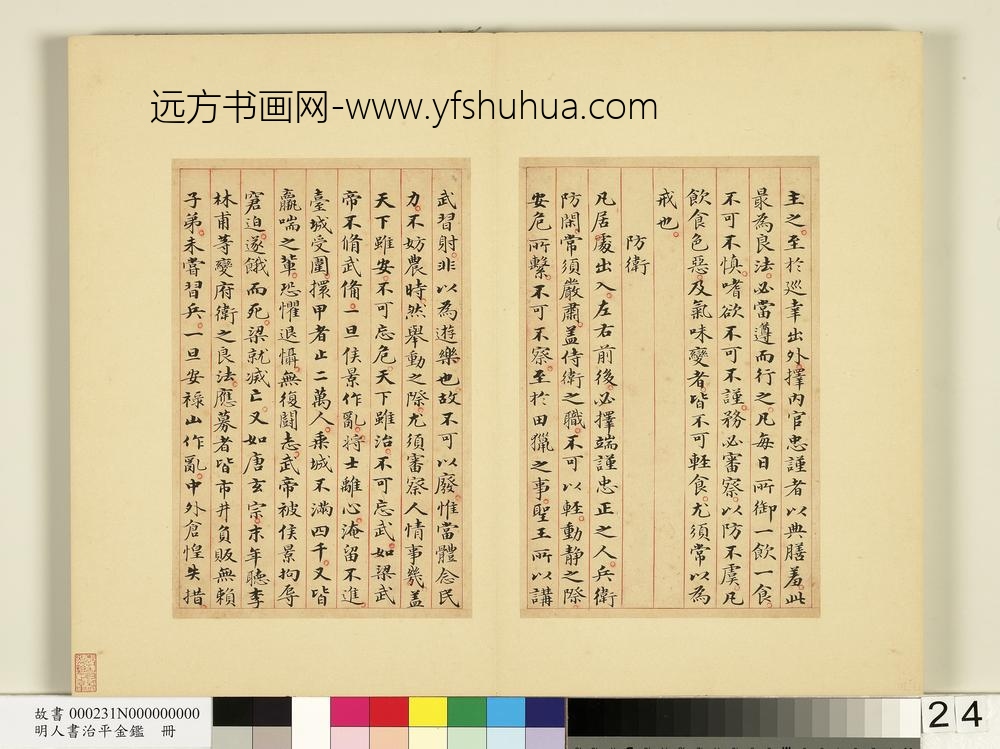 远方书画网-www.yfshuhua.com
主之。至於巡幸出外。擇內官忠謹者以典膳羞。此
最為良法。必當遵而行之。凡每日所御一飲一食。
不可不慎。嗜欲不可不謹。務必審察。以防不虞。凡
飲食色惡。及氣味變者。皆不可輕食。尤須常以為
戒也。
防衛
凡居處出入。左右前後。必擇端謹忠正之人。兵衛
防閑。常須嚴肅。蓋侍衛之職。不可以輕。動靜之際。
安危所繫。不可不察。至於田獵之事。聖王所以講
武習射。非以為遊樂也。故不可以廢。惟當體念民
力。不妨農時。然舉動之際。尤須審察人情事幾。蓋
天下雖安。不可忘危。天下雖治。不可忘武。如梁武
帝不脩武備。一旦侯景作亂。將士離心。淹留不進。
臺城受圍。擐甲者止二萬人。乘城不滿四千。又皆
羸喘之輩。恐懼退懾。無復鬪志。武帝被侯景拘辱
窘迫。遂餓而死。梁就滅亡。又如唐玄宗。末年聽李
林甫等變府衛之良法。應募者皆市井負販無賴
子弟。未嘗習兵。一旦安祿山作亂。中外倉惶失措。
故書 000231N000000000
明人書治平金鑑 冊
24